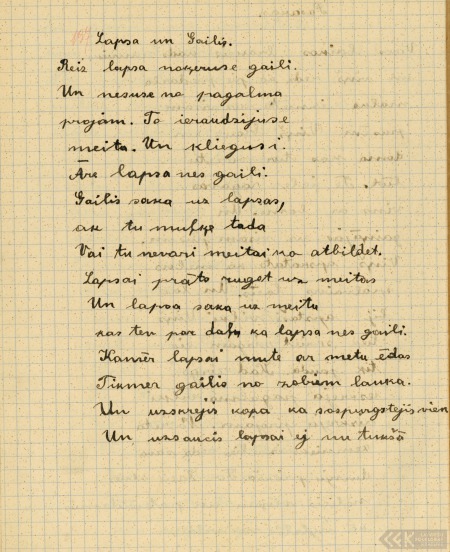 Lapsa un Gailis.
Reiz lapsa noķeruse gaili.
Un nesuse no pagalma
projām. To ieraudzijuse
meita. Un kliegusi.
Āre lapsa nes gaili.
Gailis saka uz lapsas,
ak tu muļķe tada
Vai tu nevari meitai ko atbildet.
Lapsai prāto ruget uz meitas
Un lapsa saka uz meitu
kas tev par daļu ka lapsa nes gaili.
Kamēr lapsai mute ar metu ēdas
Tikmer gailis no zobiem lauka.
Un uzskrejis koka ka sospurgstejis vien
Un uzsaucis lapsai ej nu tukšā